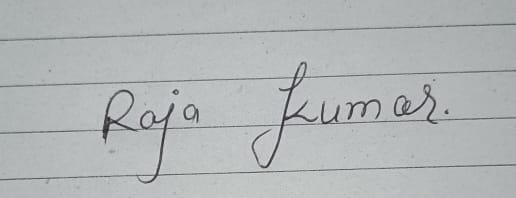 Raja Kumar.